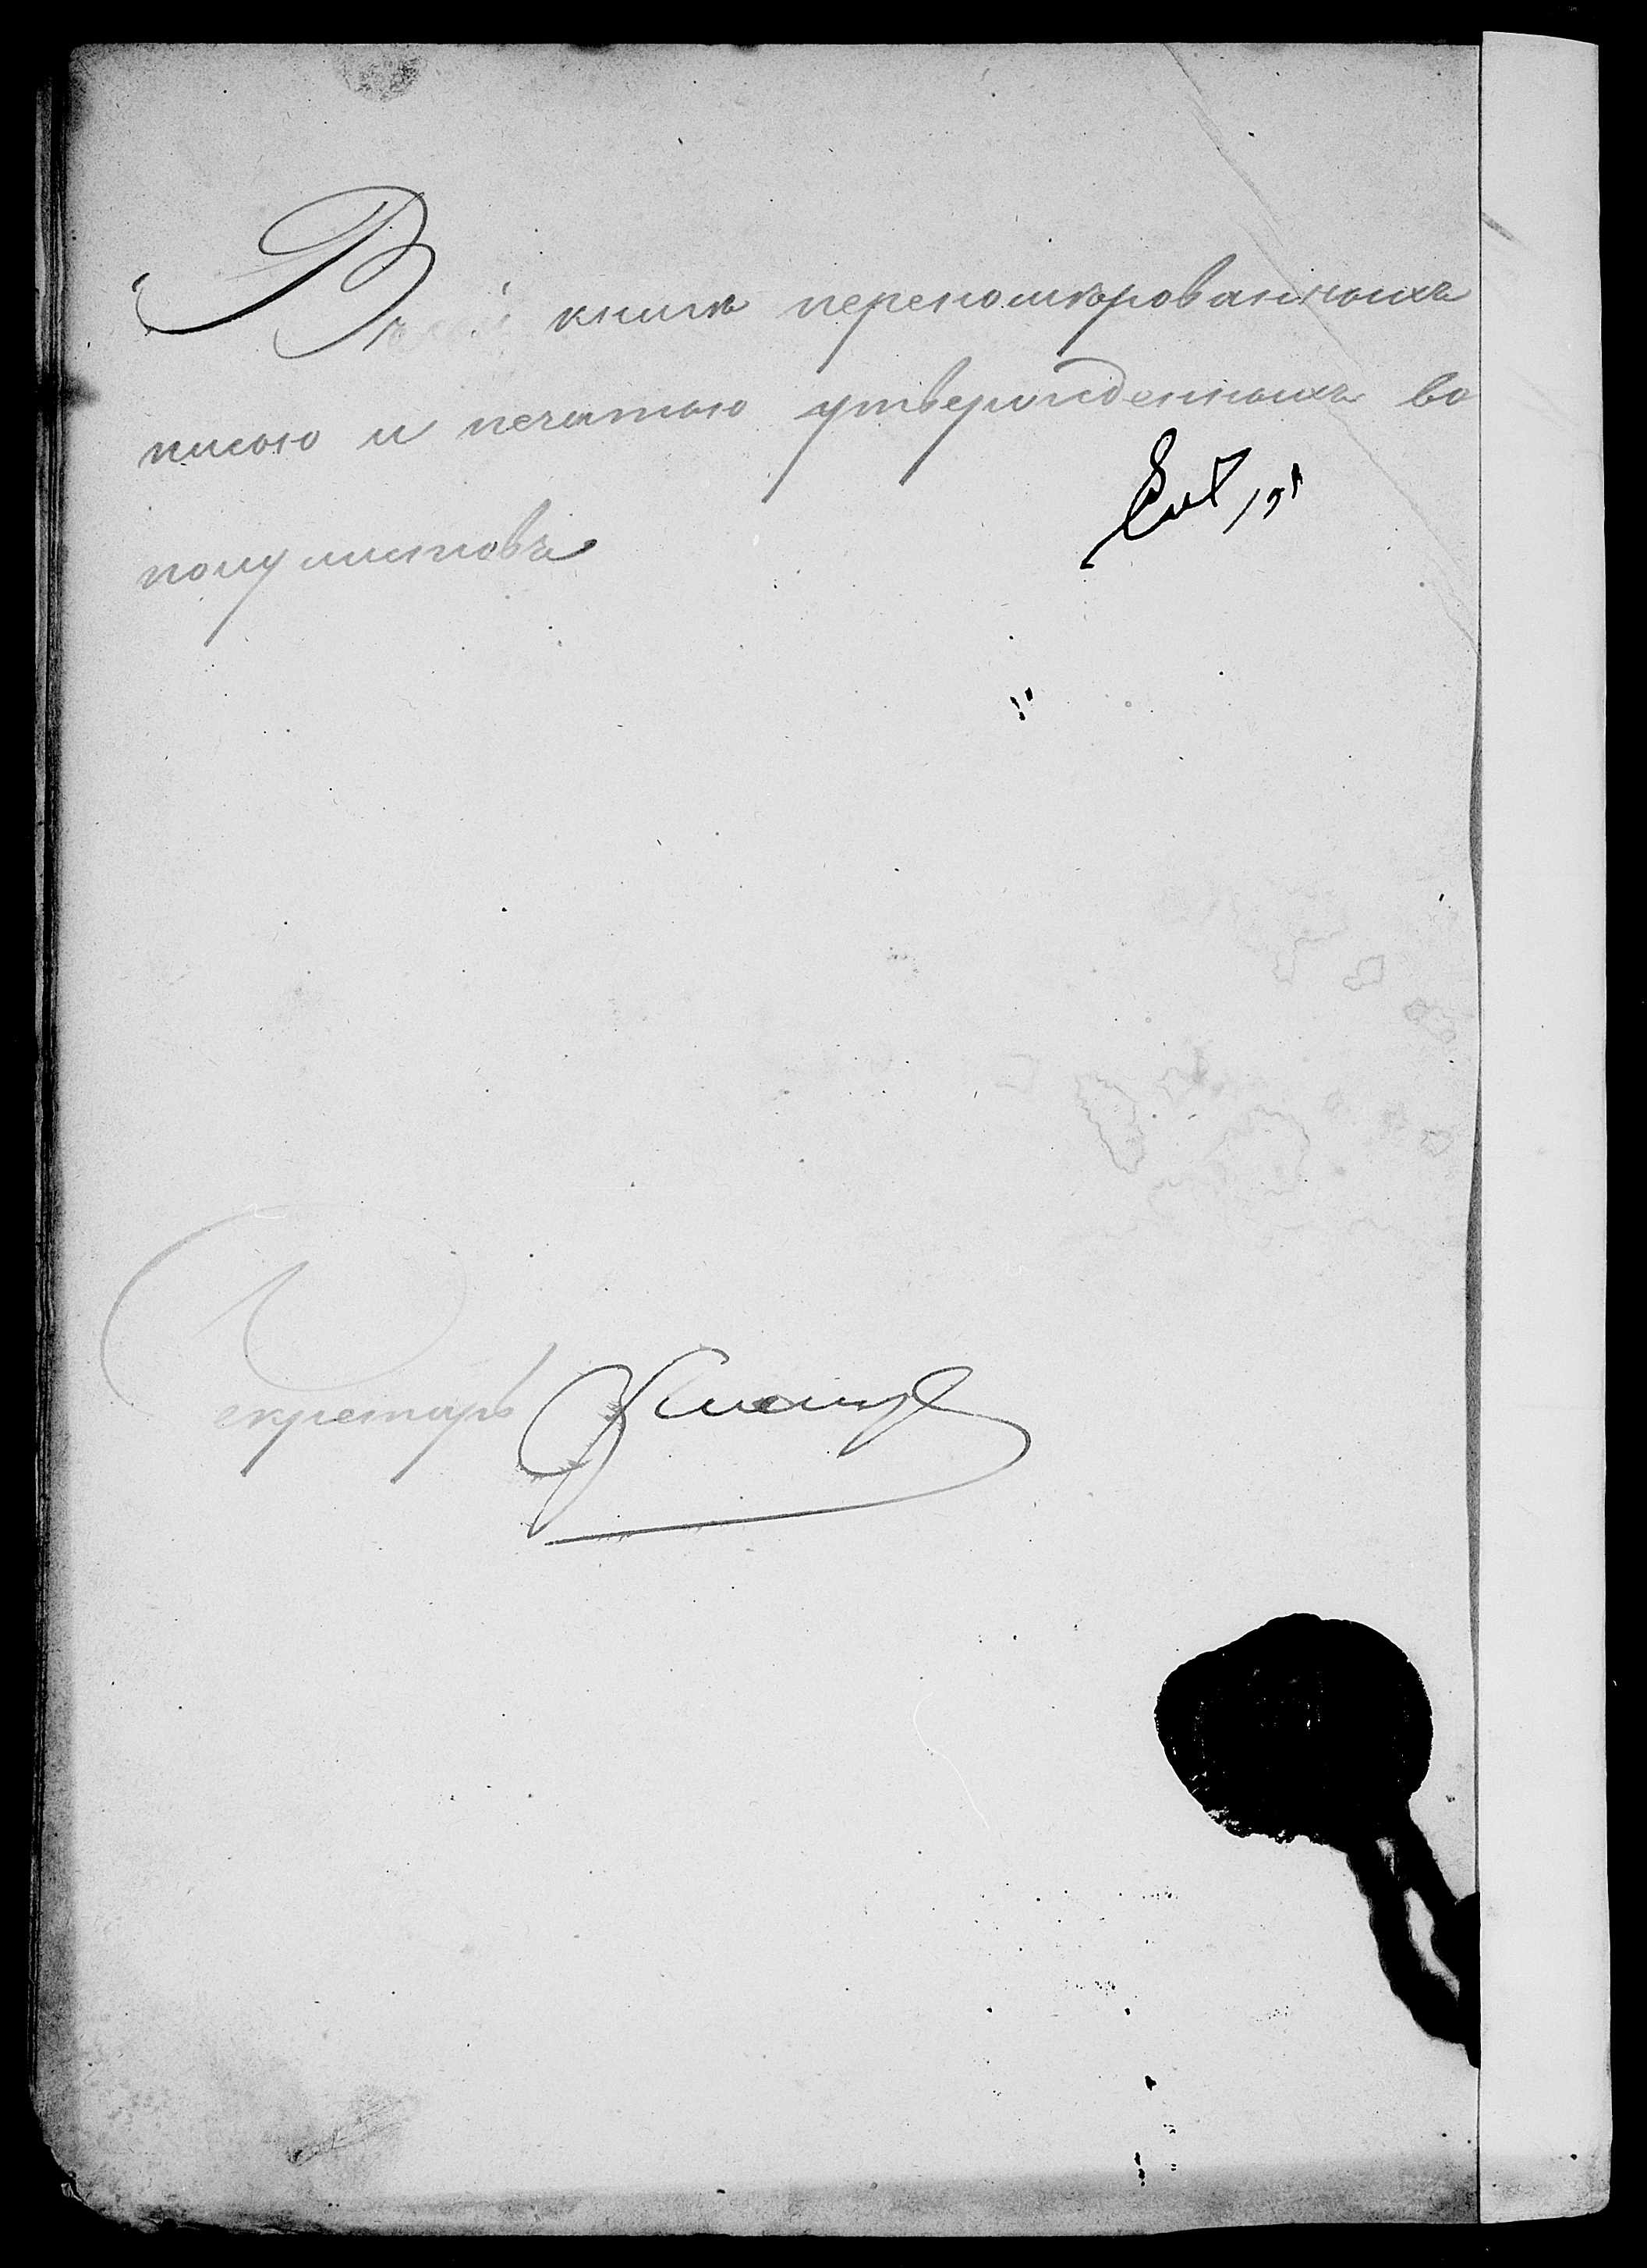 Въ сей книгѣ перенумѣрованныхъ
писью и печатью утвержденныхъ во
полулистовъ
Секретарь